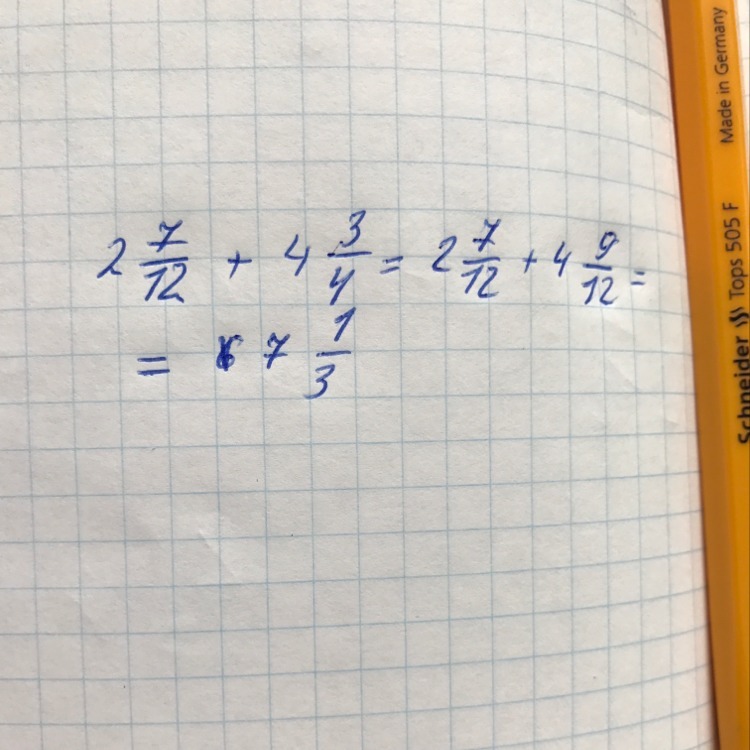 2 7/12 + 4 3/4 = 2 7/12 + 4 9/12 =
= 7 1/3
Schneider Tops 505 F Made in Germany